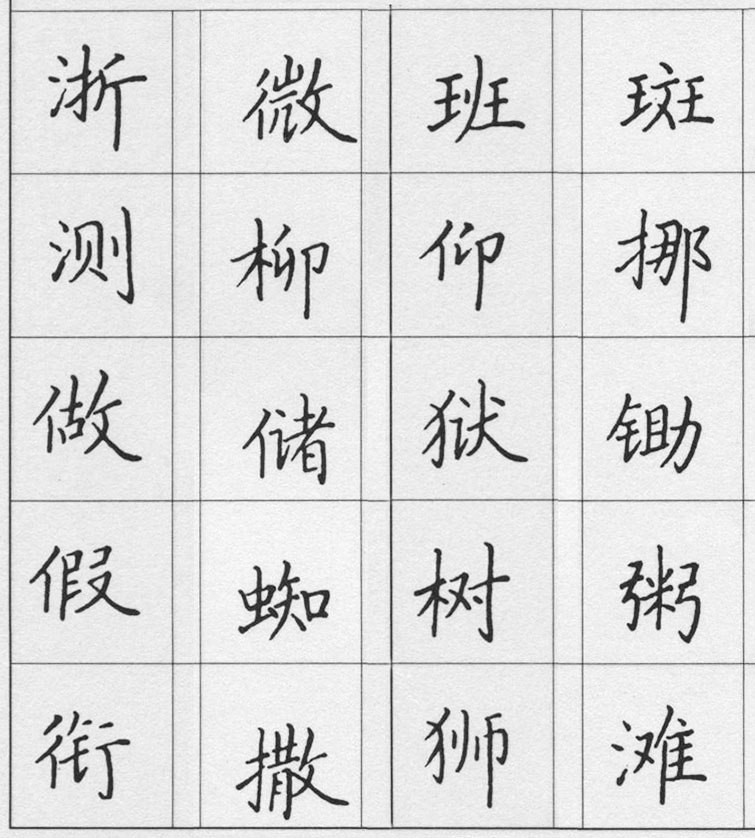 浙 微 班 斑
测 柳 仰 挪
做 储 狱 锄
假 蜘 树 粥
衔 撒 狮 滩